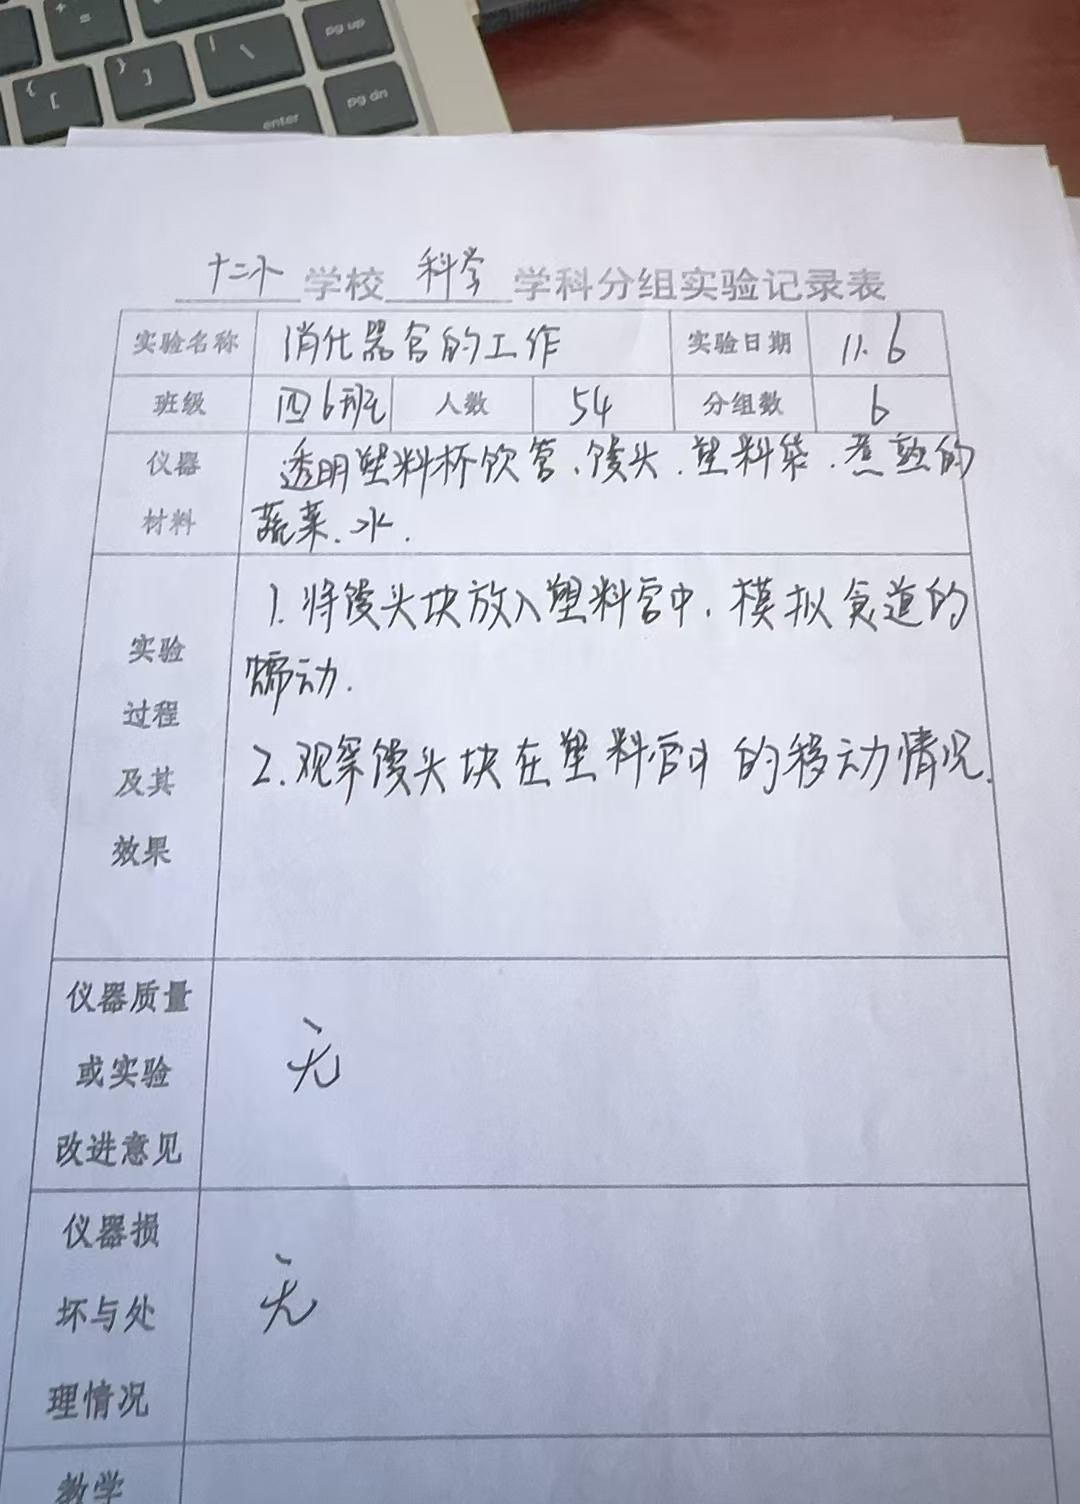 + =
pg up
| \
{ [
} ]
enter
pg dn
十二小学校科学学科分组实验记录表
实验名称 消化器官的工作 实验日期 11.6
班级 四6班 人数 54 分组数 6
仪器 透明塑料杯饮管、馒头.塑料袋.煮熟的
材料 蔬菜.水.
1.将馒头块放入塑料官中.模拟食道的
实验 蠕动.
过程 2.观察馒头块在塑料官中的移动情况.
及其
效果
仪器质量
或实验 无
改进意见
仪器损
坏与处 无
理情况
教学